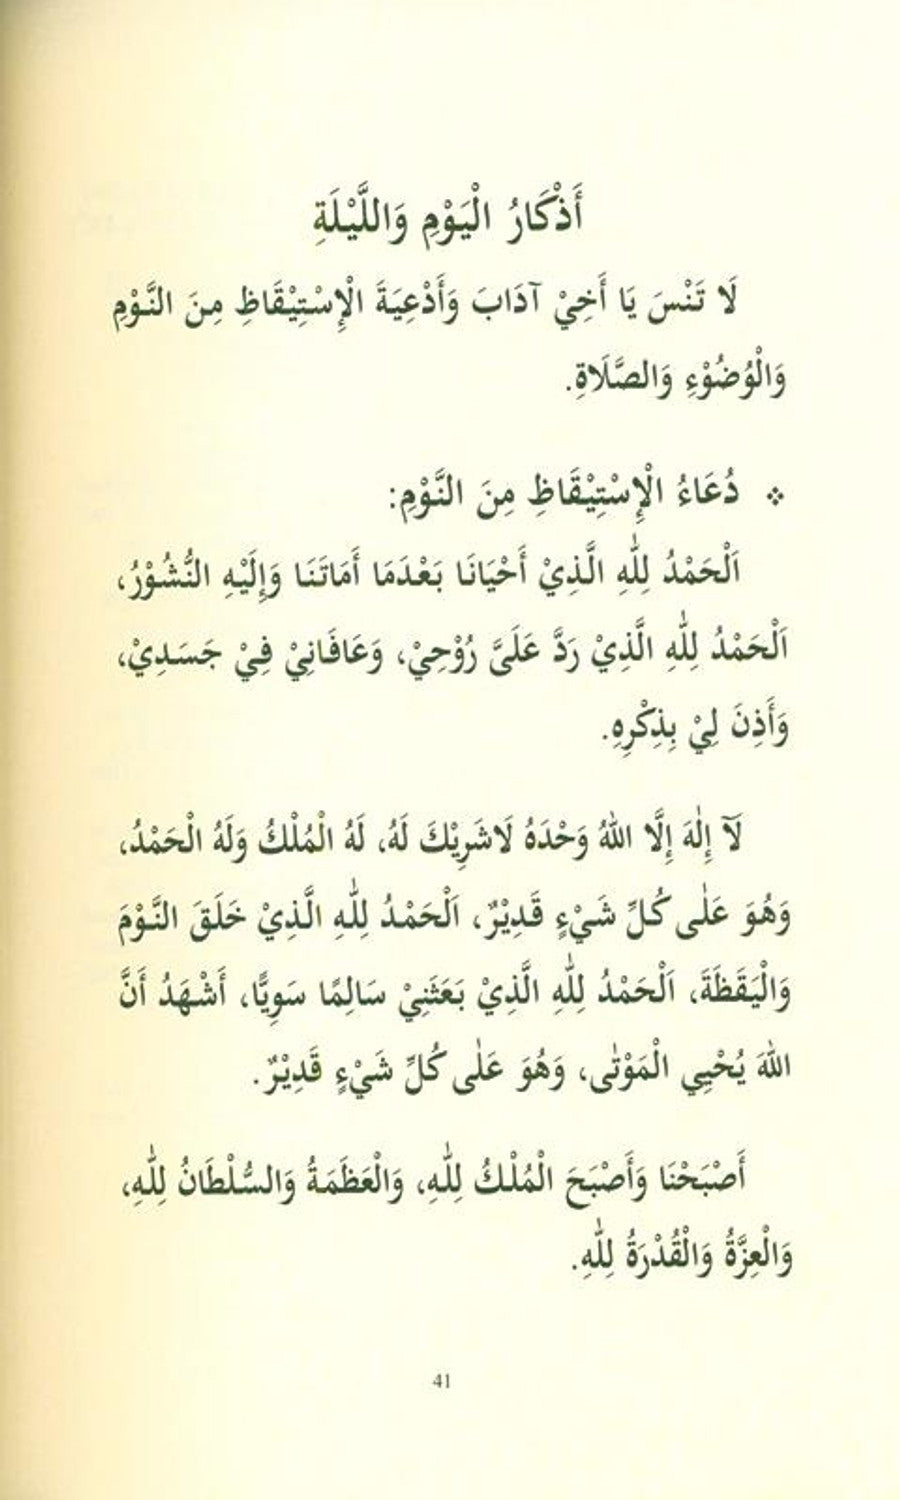 أَذْكَارُ الْيَوْمِ وَاللَّيْلَةِ
لَا تَنْسَ يَا أَخِيْ آدَابَ وَأَدْعِيَةَ الْإِسْتِيْقَاظِ مِنَ النَّوْمِ
وَالْوُضُوْءِ وَالصَّلَاةِ.
❖ دُعَاءُ الْإِسْتِيْقَاظِ مِنَ النَّوْمِ:
اَلْحَمْدُ لِلّٰهِ الَّذِيْ أَحْيَانَا بَعْدَمَا أَمَاتَنَا وَإِلَيْهِ النُّشُوْرُ،
اَلْحَمْدُ لِلّٰهِ الَّذِيْ رَدَّ عَلَىَّ رُوْحِيْ، وَعَافَانِيْ فِيْ جَسَدِيْ،
وَأَذِنَ لِيْ بِذِكْرِهِ.
لَآ إِلٰهَ إِلَّا اللهُ وَحْدَهُ لَاشَرِيْكَ لَهُ، لَهُ الْمُلْكُ وَلَهُ الْحَمْدُ،
وَهُوَ عَلٰى كُلِّ شَيْءٍ قَدِيْرٌ، اَلْحَمْدُ لِلّٰهِ الَّذِيْ خَلَقَ النَّوْمَ
وَالْيَقَظَةَ، اَلْحَمْدُ لِلّٰهِ الَّذِيْ بَعَثَنِيْ سَالِمًا سَوِيًّا، أَشْهَدُ أَنَّ
اللهَ يُحْيِي الْمَوْتٰى، وَهُوَ عَلٰى كُلِّ شَيْءٍ قَدِيْرٌ.
أَصْبَحْنَا وَأَصْبَحَ الْمُلْكُ لِلّٰهِ، وَالْعَظَمَةُ وَالسُّلْطَانُ لِلّٰهِ،
وَالْعِزَّةُ وَالْقُدْرَةُ لِلّٰهِ.
41